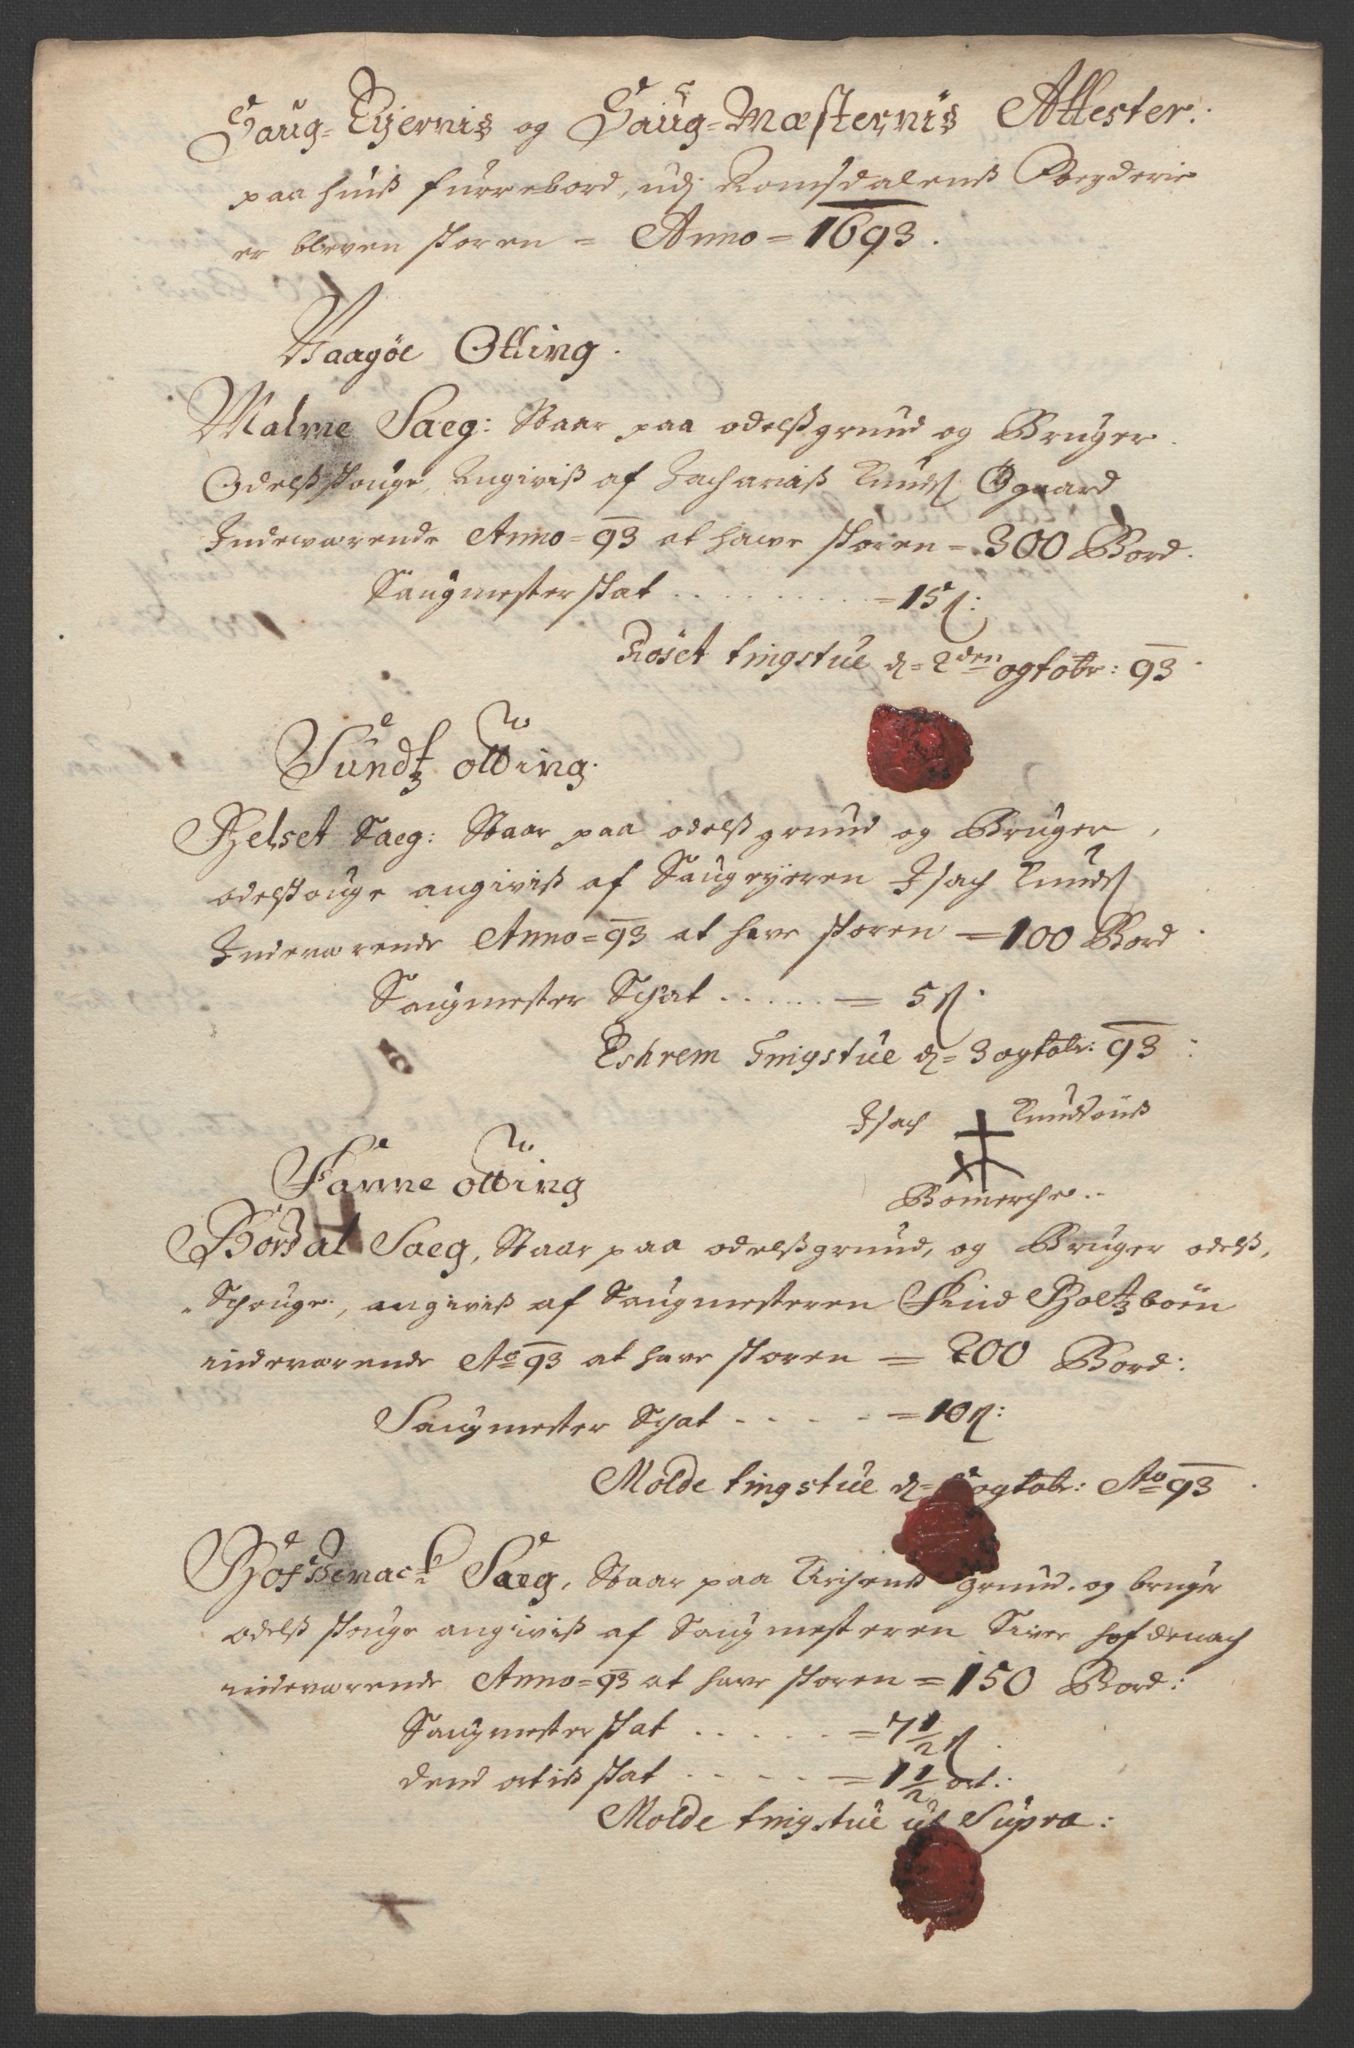 Saug-Eyernis og Saug-Mæsternis Attester:
paa huis furrebord, udj Romsdalens Fogderie
er bleven skoren = Anno = 1693.
Waagöe Otting.
Malme Saeg: Staar paa odelsß grund og Bruger
Odelsß skouge, Angiviß af Zachariaß Knuds Øgaard
Indeværende Anno = 93 at hawe skoren = 300 Bord.
Saugmester skat . . . . = 15 ß:
Röset tingstue d= 2den ogtobr: 93
Sundtz otting.
Helset Saeg: Staar paa odelß grund og Bruger,
odelskouge angiviß af Saugeyeren Isach Knuds
Indeværende Anno = 93 at have skoren = 100 Bord
Saugmester Schat . . . . = 5 ß.
Eshrem Tingstue d= 3 ogtobr: 93:
Isach Knudsönß
Bomerche..
Fanne otting
Bordal Saeg, Staar paa odelß grund, og Bruger odelß,
Schouge, angiviß af Saugmesteren Find Holtzböen
indeværende Ao 93 at have skoren = 200 Bord:
Saugmester Schat - - - - = 10 ß:
Molde tingstue d= ogtobr: Ao 93
Saeg, Staar paa Kirchens grund, og bruger
odelß skouge angiviß af Saugmesteren Siver hofdenach
indeværende Anno = 93 at have skoren = 150 Bord:
Saugmester skat . . . . = 7 1/2 ß
skat - - - - = 1 1/2 ort.:
Molde tingstue ut Supra: